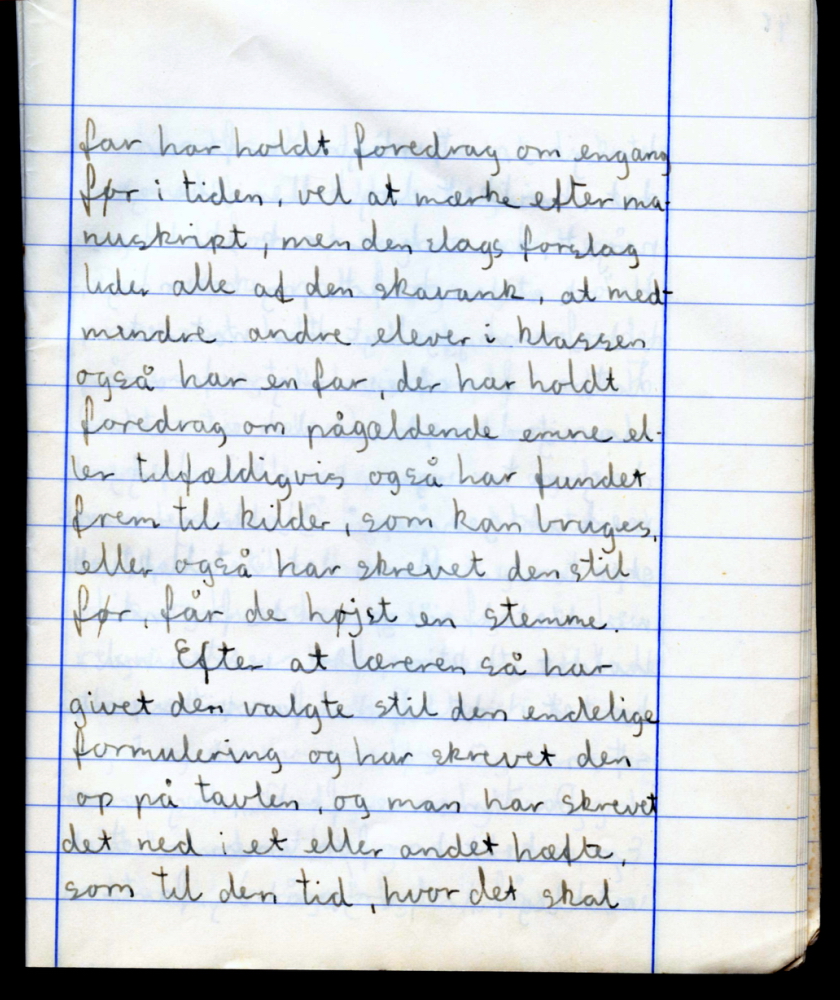 far har holdt foredrag om engang
før i tiden, vel at mærke efter ma-
nuskript, men den slags forslag
lider alle af den skavank, at med-
mindre andre elever i klassen
også har en far, der har holdt
foredrag om pågældende emne el-
ler tilfældigvis også har fundet
frem til kilder, som kan bruges,
eller også har skrevet den stil
før, får de højst en stemme.
Efter at læreren så har
givet den valgte stil den endelige
formulering og har skrevet den
op på tavlen, og man har skrevet
det ned i et eller andet hæfte,
som til den tid, hvor det skal